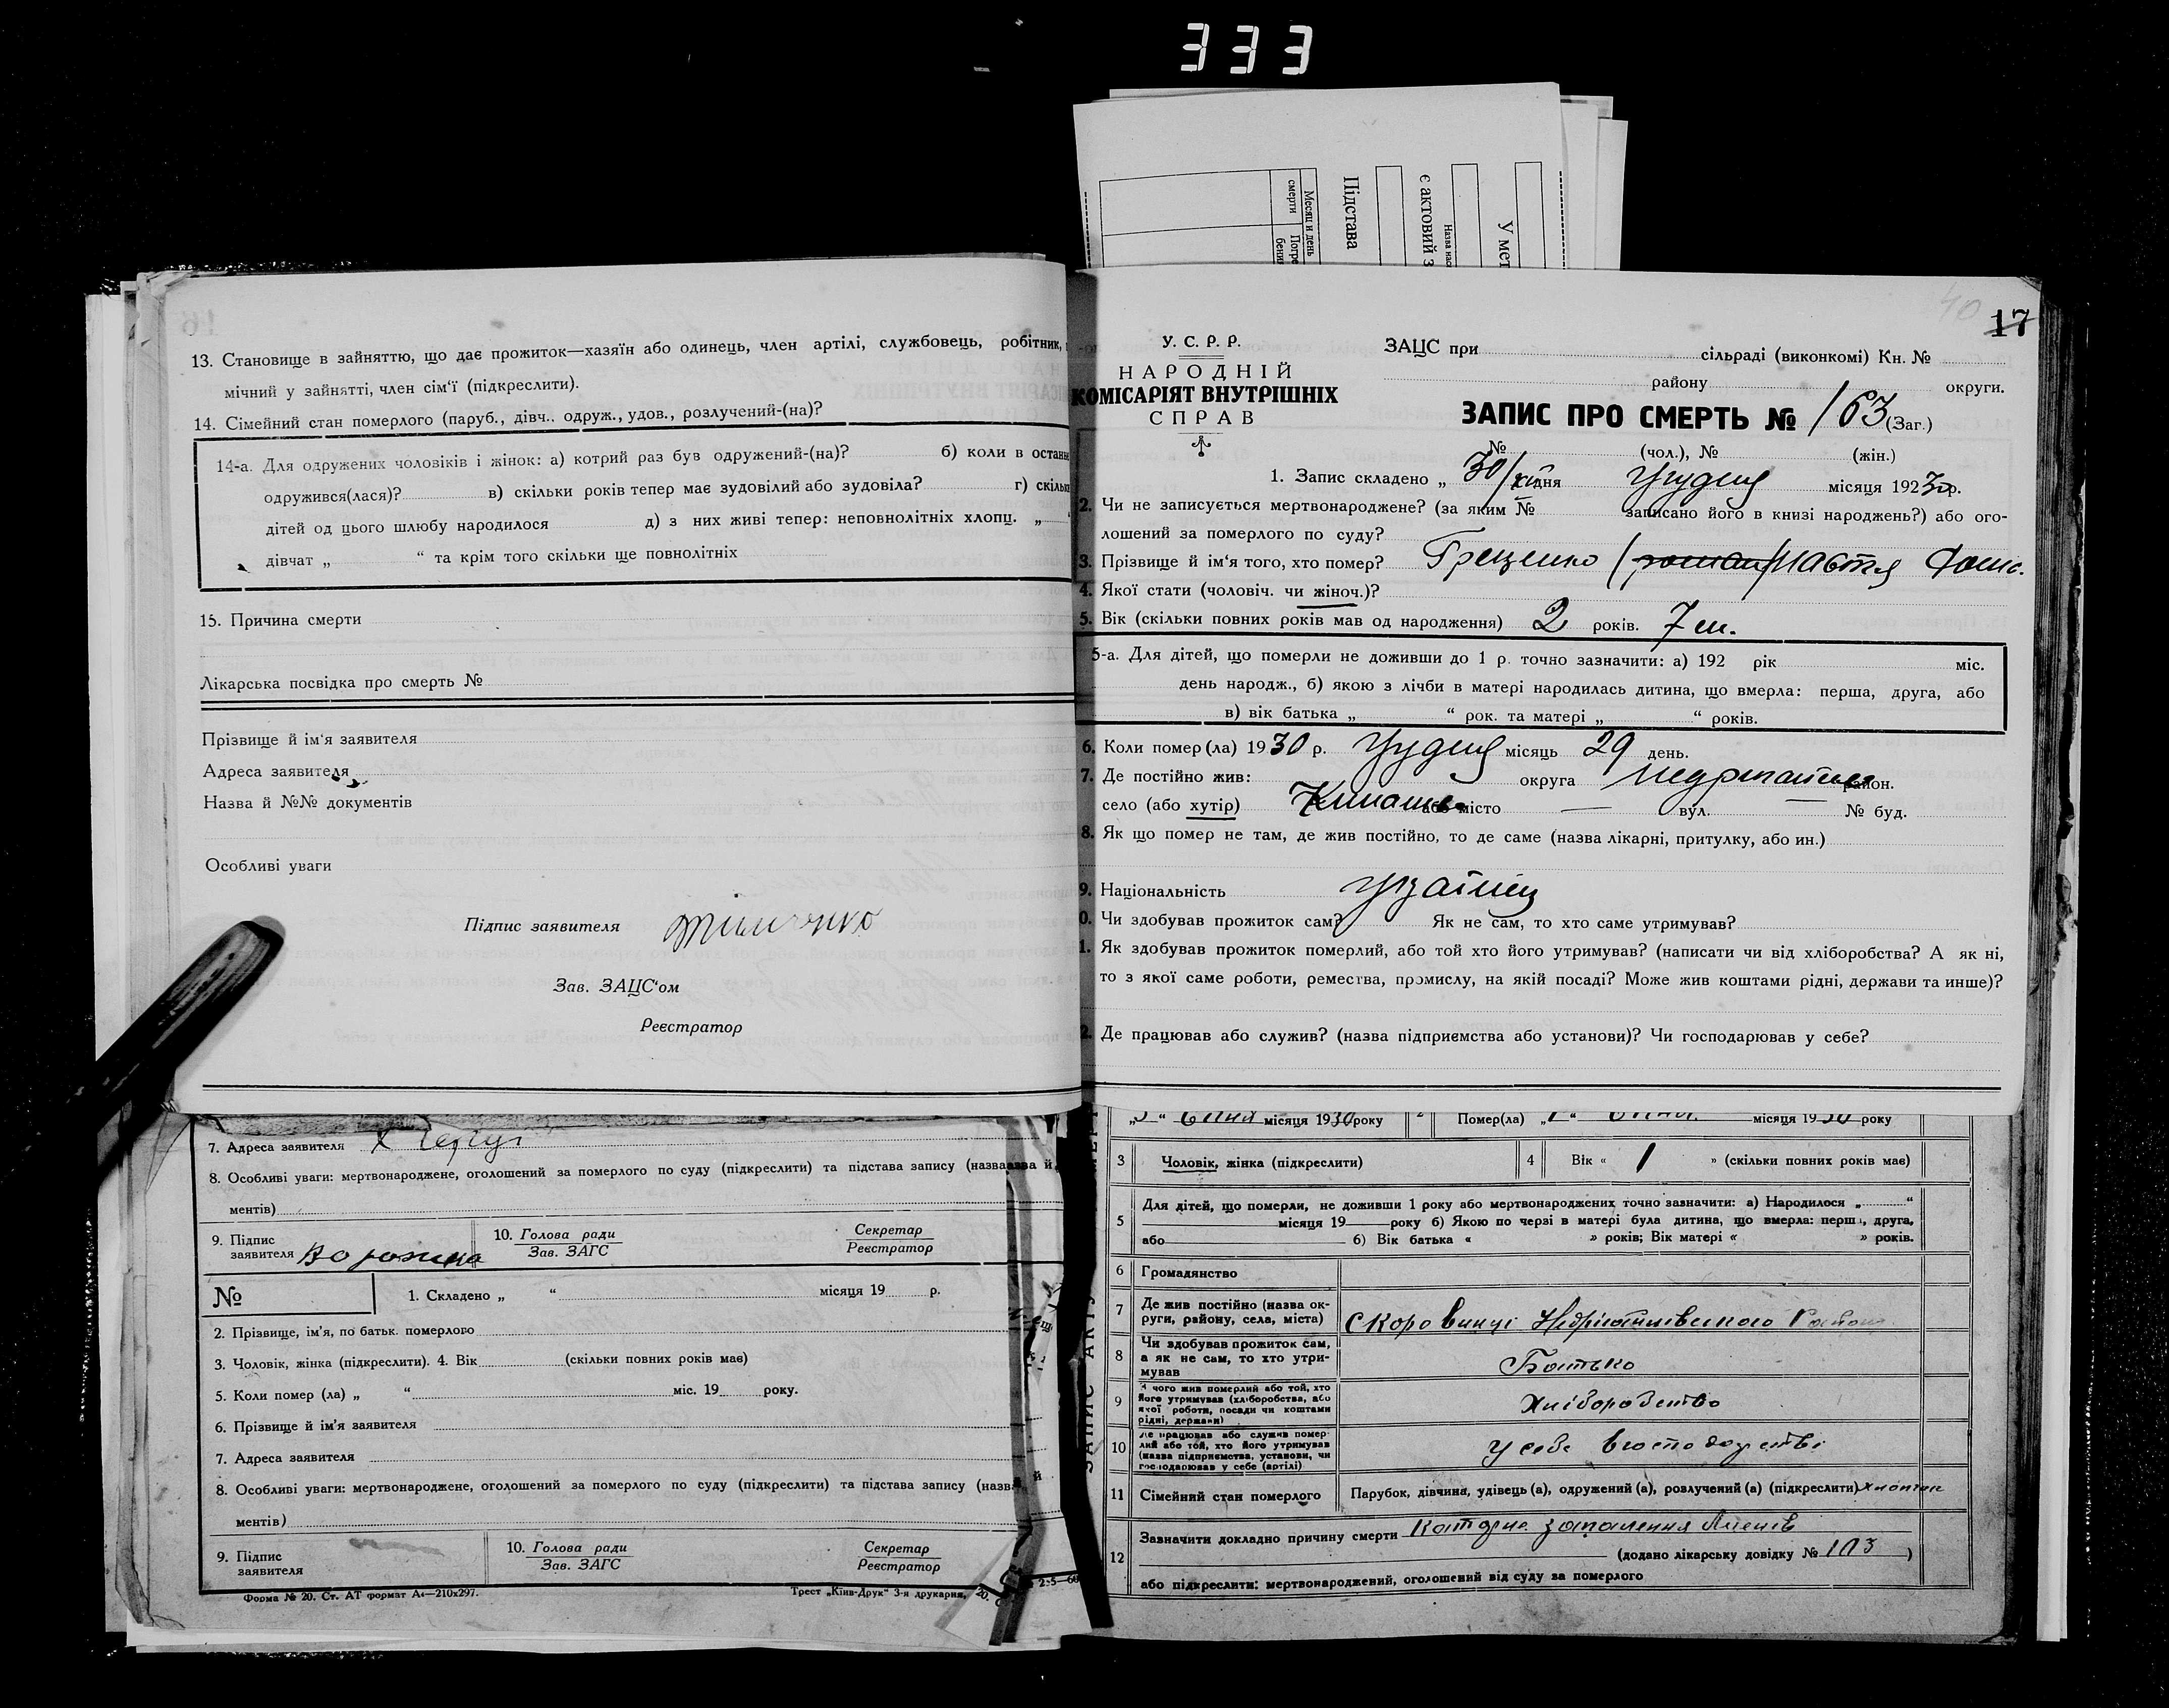 333
Месяц и день
смерти
Погре
бени
Підстава
є актовий з
Назва нас
У мет
13. Становище в зайняттю, що дає прожиток—хазяїн або одинець, член артілі, службовець, робітник,
мічний у зайнятті, член сім'ї (підкреслити).
14. Сімейний стан померлого (паруб., дівч.. одруж., удов., розлучений-(на)?
14-а. Для одружених чоловіків і жінок: а) котрий раз був одружений-(на)? б) коли в останн
одружився(лася)? в) скільки років тепер має зудовілий або зудовіла? г) скільк
дітей од цього шлюбу народилося д) з них живі тепер: неповнолітніх хлопц. „
дівчат „ “ та крім того скільки ще повнолітніх
15. Причина смерти
Лікарська посвідка про смерть №
Прізвище й ім'я заявителя
Адреса заявителя
Назва й №№ документів
Особливі уваги
Підпис заявителя
Зав. ЗАЦС'ом
Реєстратор
40
17
У. С. Р. Р.
НАРОДНІЙ
КОМІСАРІЯТ ВНУТРІШНІХ
СПРАВ
ЗАЦС при сільраді (виконкомі) Кн. №
району округи.
ЗАПИС ПРО СМЕРТЬ № 163 (Заг.)
№ (чол.), № (жін.)
1. Запис складено „ 30/XII дня Грудня місяця 192 30 р.
2. Чи не записується мертвонароджене? (за яким № записано його в книзі народжень?) або ого-
лошений за померлого по суду?
3. Прізвище й ім'я того, хто помер? Грещенко Настя
4. Якої стати (чоловіч. чи жіноч.)?
5. Вік (скільки повних років мав од народження) 2 років. 7 м.
5-а. Для дітей, що померли не доживши до 1 р. точно зазначити: а) 192 рік міс.
день народж., б) якою з лічби в матері народилась дитина, що вмерла: перша, друга, або
в) вік батька „ “ рок. та матері „ “ років.
6. Коли помер(ла) 1930 р. Грудня місяць 29 день.
7. Де постійно жив: округа район.
село (або хутір) або місто — вул. — № буд.
8. Як що помер не там, де жив постійно, то де саме (назва лікарні, притулку, або ин.)
9. Національність
0. Чи здобував прожиток сам? Як не сам, то хто саме утримував?
1. Як здобував прожиток померлий, або той хто його утримував? (написати чи від хліборобства? А як ні,
то з якої саме роботи, ремества, промислу, на якій посаді? Може жив коштами рідні, держави та инше)?
2. Де працював або служив? (назва підприємства або установи)? Чи господарював у себе?
7. Адреса заявителя
8. Особливі уваги: мертвонароджене, оголошений за померлого по суду (підкреслити) та підстава запису (назва й
ментів)
9. Підпис
заявителя
10. Голова ради
Зав. ЗАГС
Секретар
Реєстратор
№ 1. Складено „ “ місяця 19 р.
2. Прізвище, ім'я, по батьк. померлого
3. Чоловік, жінка (підкреслити). 4. Вік (скільки повних років має)
5. Коли помер (ла) „ “ міс. 19 року.
6. Прізвище й ім'я заявителя
7. Адреса заявителя
8. Особливі уваги: мертвонароджене, оголошений за померлого по суду (підкреслити) та підстава запису (назва
ментів)
9. Підпис
заявителя
10. Голова ради
Зав. ЗАГС
Секретар
Реєстратор
Форма № 20. Ст. АТ формат А4—210х297.
Трест „Київ-Друк“ 3-я друкарня,
місяця 1930 року Помер(ла) місяця 1930 року
3 Чоловік, жінка (підкреслити) 4 Вік « 1 » (скільки повних років має)
5 Для дітей, що померли, не доживши 1 року або мертвонароджених точно зазначити: а) Народилося „ “
місяця 19 року б) Якою по черзі в матері була дитина, що вмерла: перша, друга,
або б) Вік батька « » років; Вік матері « » років.
6 Громадянство
7 Де жив постійно (назва ок-
руги, району, села, міста) Скоровинці Недригайлівського Району
8 Чи здобував прожиток сам,
а як не сам, то хто утри-
мував Батько
9 З чого жив померлий або той, хто
його утримував (хліборобства, або
якої роботи, посади чи коштами
рідні, держави) Хліборобство
10 Де працював або служив помер-
лий або той, хто його утримував
(назва підприємства, установи, чи
господарював у себе (артілі) У себе в господарстві
11 Сімейний стан померлого Парубок, дівчина, удівець(а), одружений(а), розлучений(а) (підкреслити) хлопчик
12 Зазначити докладно причину смерти запалення
(додано лікарську довідку № 103 )
або підкреслити: мертвонароджений, оголошений від суду за померлого